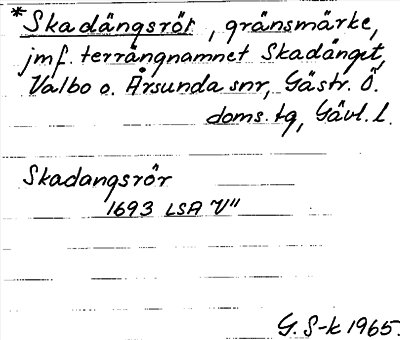 *Skadängsrör, gränsmärke,
jmf. terrängnamnet Skadänget,
Valbo o. Årsunda snr, Gästr. Ö.
doms.tg, Gävl. l.
Skadangsrör
1693 LSA V"
G. S-k 1965.